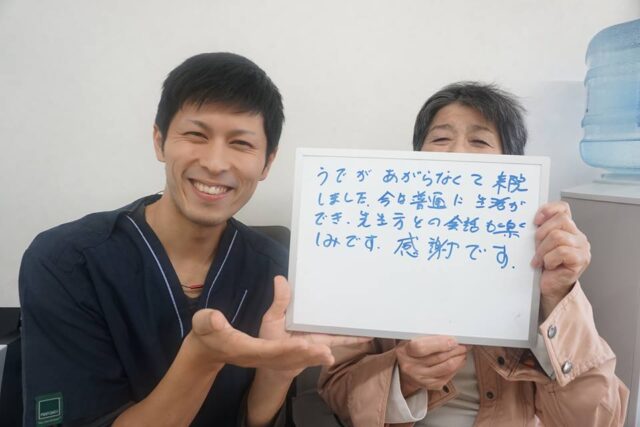 うでが あがらなくて 来院
しました。今は普通に生活が
でき、先生方との会話も楽
しみです。感謝です。
PANTONE